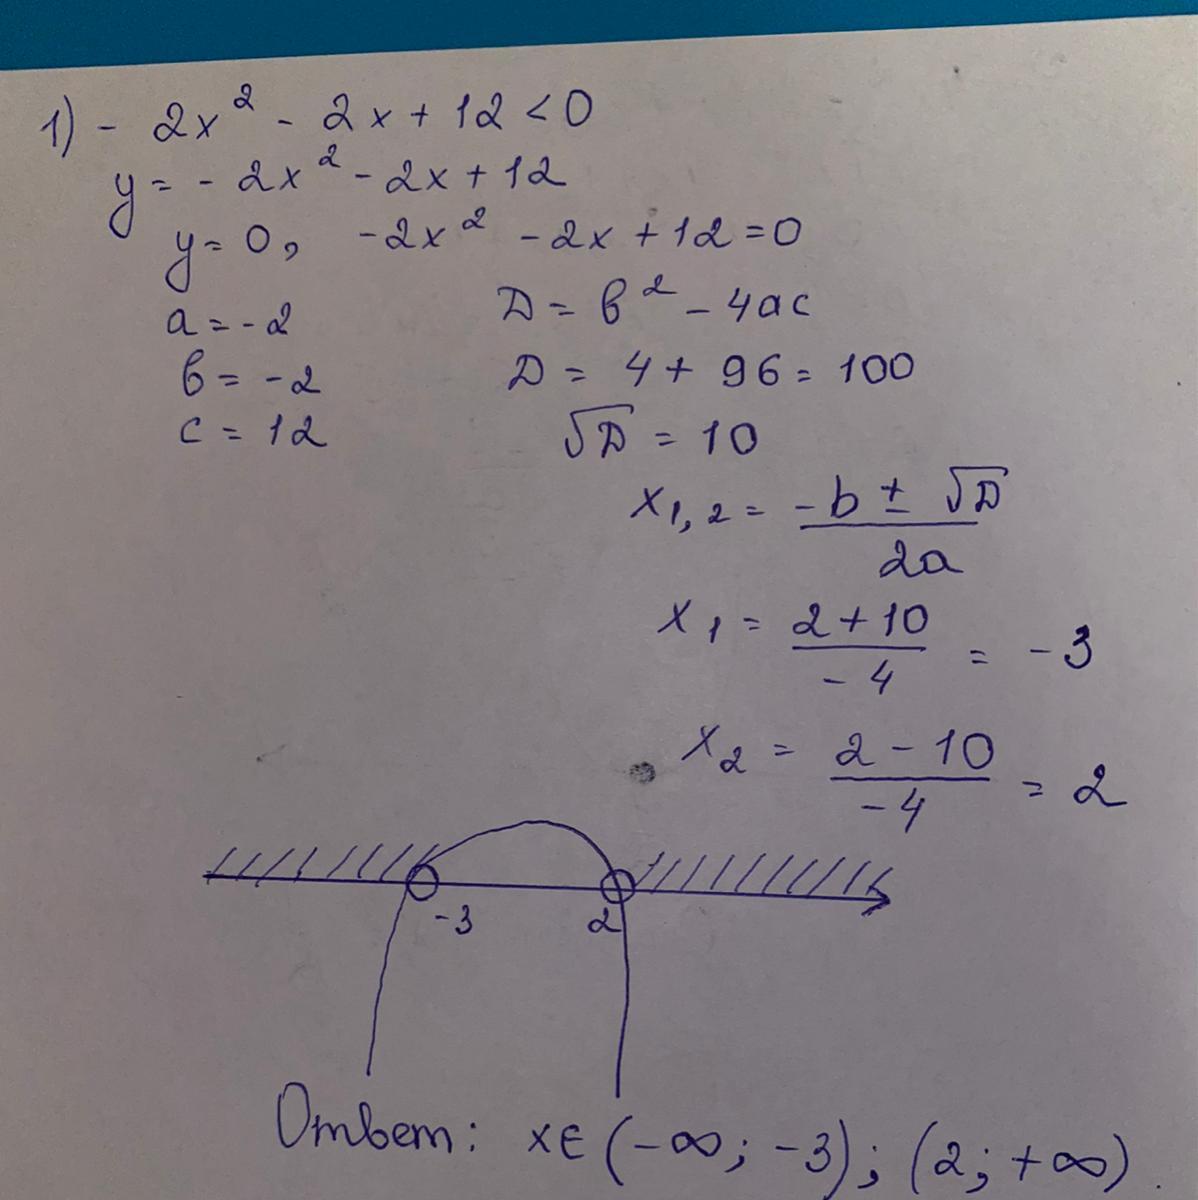 1) - 2x² - 2x + 12 < 0
y = - 2x² - 2x + 12
y = 0, -2x² - 2x + 12 = 0
a = -2 D = b² - 4ac
b = -2 D = 4 + 96 = 100
c = 12 √D = 10
x₁,₂ = (-b ± √D) / 2a
x₁ = (2 + 10) / -4 = -3
x₂ = (2 - 10) / -4 = 2
-3 2
Ответ: x∈(-∞; -3); (2; +∞).